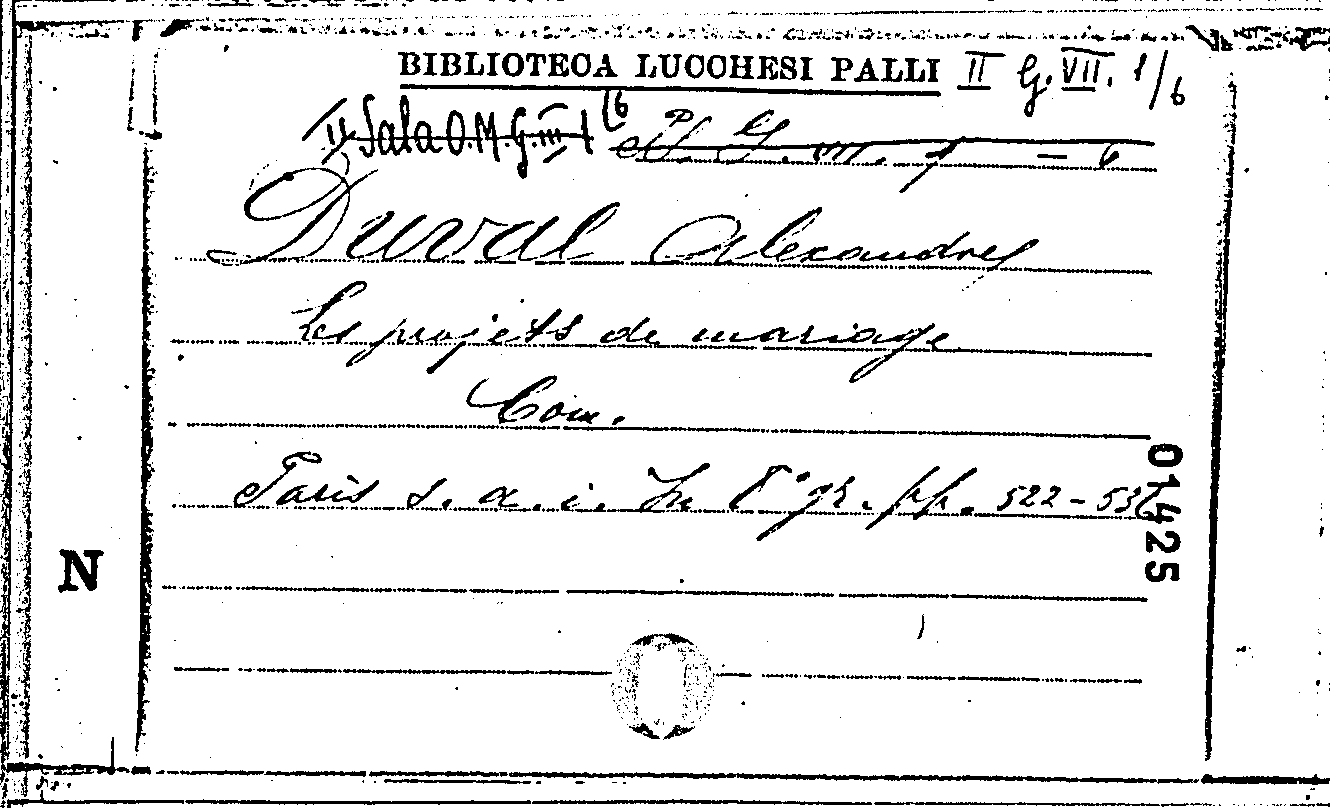 BIBLIOTECA LUCCHESI PALLI II G. VII. 1/6
II Sala O.M.G. III 1 6 Pl. G. VII. 1 – 6
Duval Alexandre
Les projets de mariage
Com.
Paris s. a. i. In 8° gr. pp. 522-536
01425
N